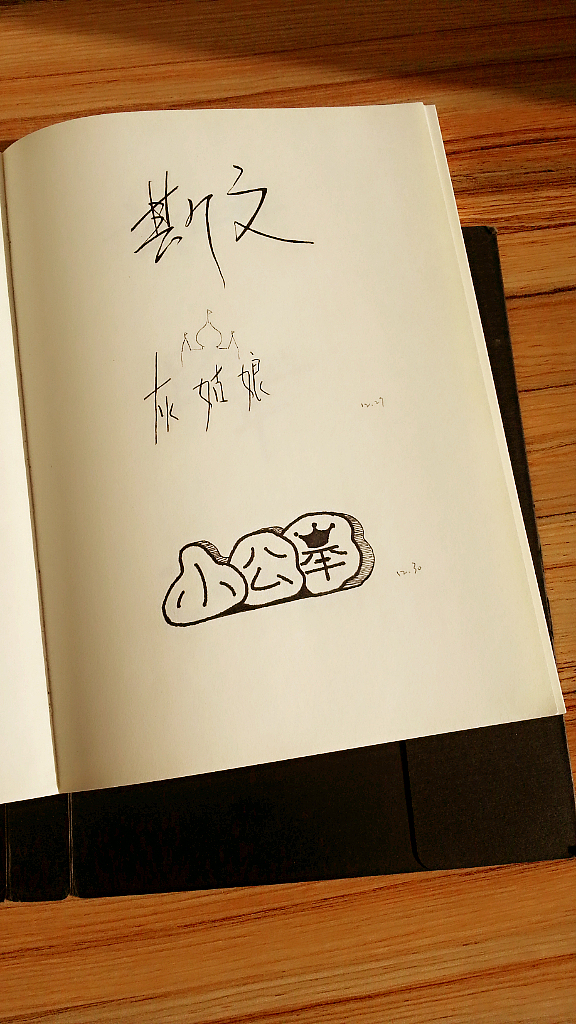 斯文
灰姑娘
12.27
小公举
12.30